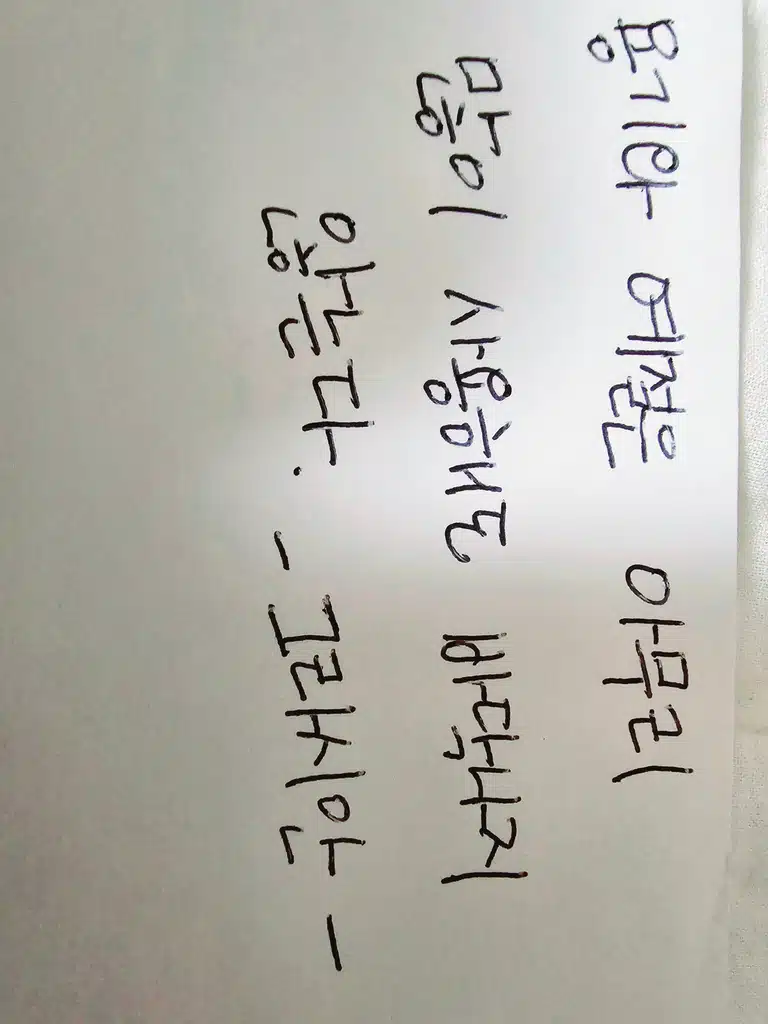 용기와 예절은 아무리
많이 사용해도 바닥나지
않는다. - 그라시안 -